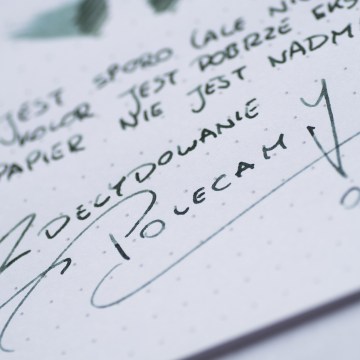 JEST SPORO (ALE NIE
KOLOR JEST DOBRZE EKS
PAPIER NIE JEST NADMI
ZDECYDOWANIE
POLECAM!